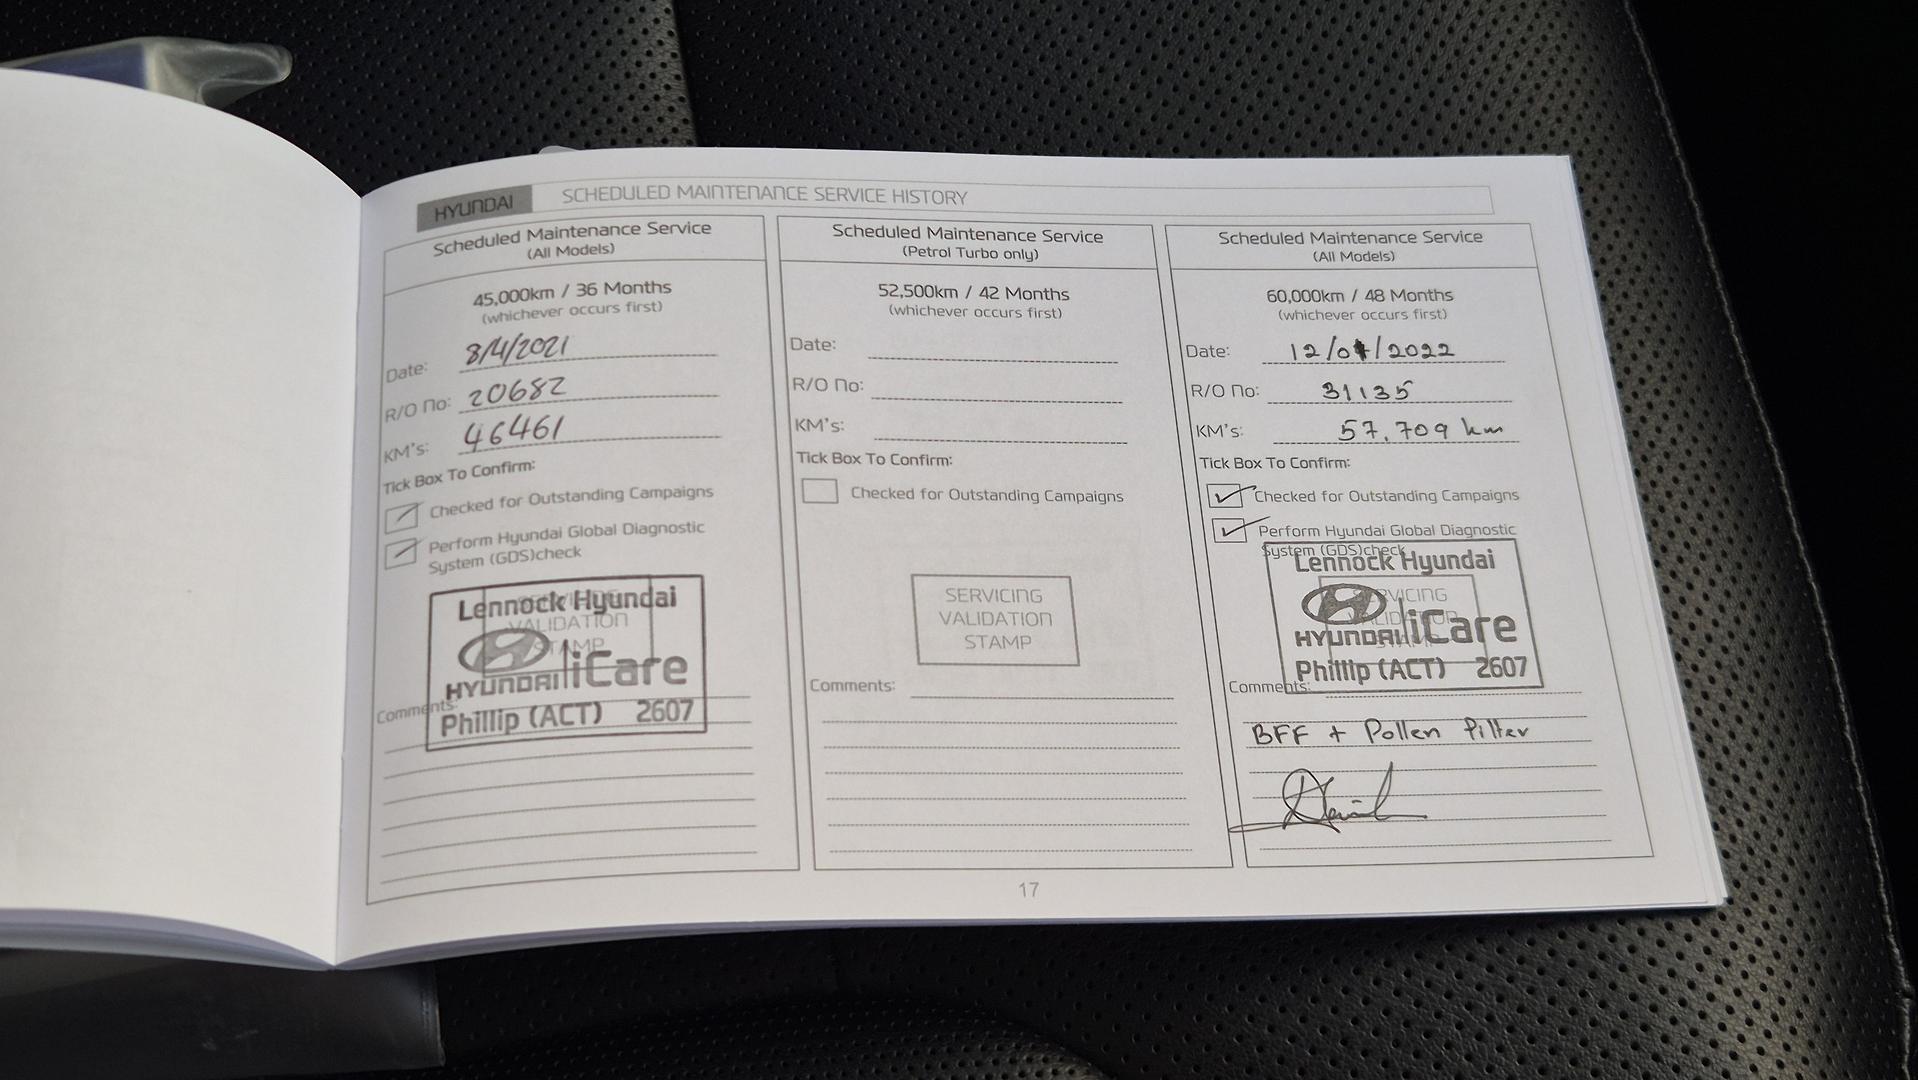 HYUNDAI
SCHEDULED MAINTENANCE SERVICE HISTORY
Scheduled Maintenance Service
(All Models)
45,000km / 36 Months
(whichever occurs first)
Date: 8/4/2021
R/O No: 20682
KM's: 46461
Tick Box To Confirm:
Checked for Outstanding Campaigns
Perform Hyundai Global Diagnostic
System (GDS)check
Lennock Hyundai
VALIDATION
STAMP
HYUNDAI iCare
Phillip (ACT) 2607
Comments:
Scheduled Maintenance Service
(Petrol Turbo only)
52,500km / 42 Months
(whichever occurs first)
Date:
R/O No:
KM's:
Tick Box To Confirm:
Checked for Outstanding Campaigns
SERVICING
VALIDATION
STAMP
Comments:
Scheduled Maintenance Service
(All Models)
60,000km / 48 Months
(whichever occurs first)
Date: 12/04/2022
R/O No: 31135
KM's: 57,709 km
Tick Box To Confirm:
Checked for Outstanding Campaigns
Perform Hyundai Global Diagnostic
System (GDS)check
Lennock Hyundai
HYUNDAI iCare
Phillip (ACT) 2607
Comments:
BFF + Pollen Filter
17